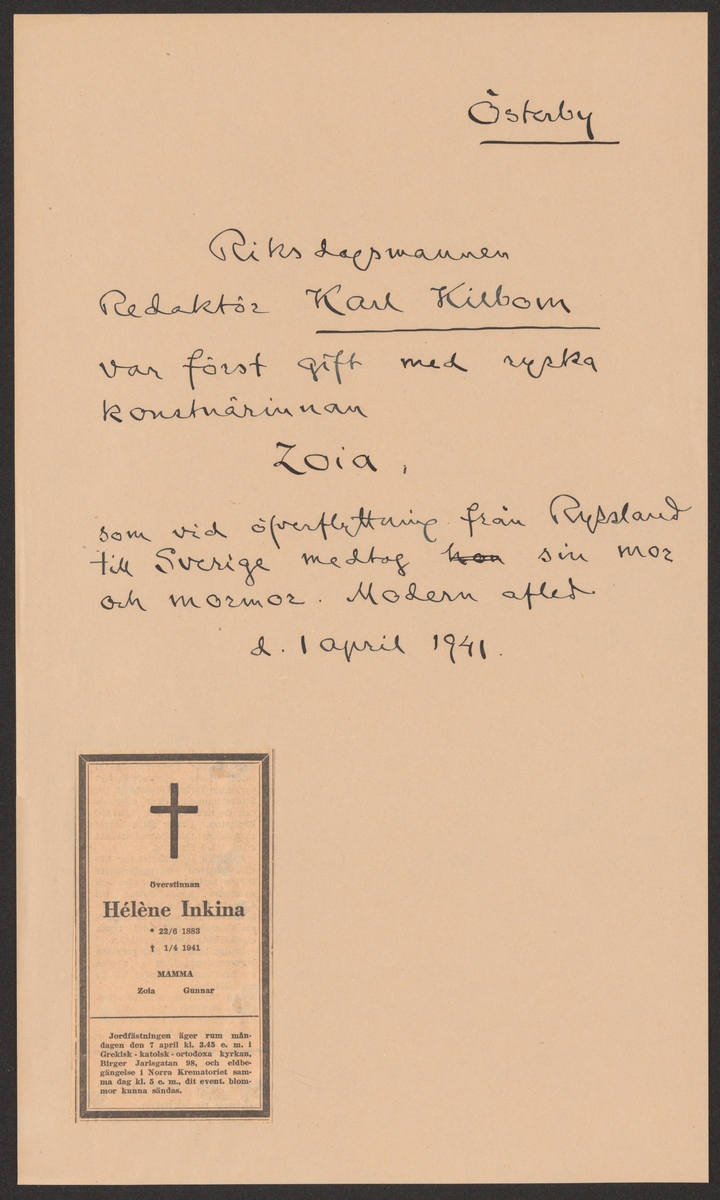 Österby
Riksdagsmannen
Redaktör Karl Kilbom
var först gift med ryska
konstnärinnan
Zoia,
som vid öfverflyttning från Ryssland
till Sverige medtog hon sin mor
och mormor. Modern afled
d. 1 april 1941.
överstinnan
Hélène Inkina
* 22/6 1883
† 1/4 1941
MAMMA
Zoia Gunnar
Jordfästningen äger rum mån-
dagen den 7 april kl. 3.45 e. m. i
Grekisk-katolsk-ortodoxa kyrkan,
Birger Jarlsgatan 98, och eldbe-
gängelse i Norra Krematoriet sam-
ma dag kl. 5 e. m., dit event. blom-
mor kunna sändas.